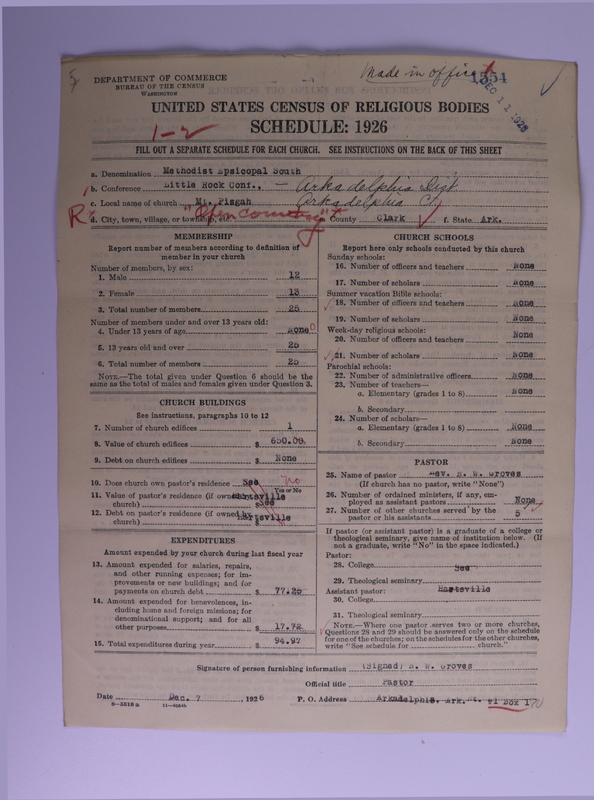 Made in office
1554
DEC 11 1926
DEPARTMENT OF COMMERCE
BUREAU OF THE CENSUS
WASHINGTON
UNITED STATES CENSUS OF RELIGIOUS BODIES
1-2
SCHEDULE: 1926
FILL OUT A SEPARATE SCHEDULE FOR EACH CHURCH. SEE INSTRUCTIONS ON THE BACK OF THIS SHEET
a. Denomination Methodist Epsicopal South
b. Conference Little Rock Conf., - Arkadelphia Dist
c. Local name of church Mt. Pisgah Arkadelphia Ct.
R d. City, town, village, or township, etc. "Open country" e. County Clark f. State Ark.
MEMBERSHIP
Report number of members according to definition of
member in your church
Number of members, by sex:
1. Male 12
2. Female 13
3. Total number of members 25
Number of members under and over 13 years old:
4. Under 13 years of age None 0
5. 13 years old and over 25
6. Total number of members 25
NOTE.—The total given under Question 6 should be the
same as the total of males and females given under Question 3.
CHURCH BUILDINGS
See instructions, paragraphs 10 to 12
7. Number of church edifices 1
8. Value of church edifices $ 650.00.
9. Debt on church edifices $ None
10. Does church own pastor's residence See no
Yes or No
11. Value of pastor's residence (if owned by Hartsville
church) $ See
12. Debt on pastor's residence (if owned by Hartsville
church) $
EXPENDITURES
Amount expended by your church during last fiscal year
13. Amount expended for salaries, repairs,
and other running expenses; for im-
provements or new buildings; and for
payments on church debt $ 77.25
14. Amount expended for benevolences, in-
cluding home and foreign missions; for
denominational support; and for all
other purposes $ 17.72
15. Total expenditures during year $ 94.97
CHURCH SCHOOLS
Report here only schools conducted by this church
Sunday schools:
16. Number of officers and teachers None
17. Number of scholars None
Summer vacation Bible schools:
18. Number of officers and teachers None
19. Number of scholars None
Week-day religious schools:
20. Number of officers and teachers None
21. Number of scholars None
Parochial schools:
22. Number of administrative officers None
23. Number of teachers—
a. Elementary (grades 1 to 8) None
b. Secondary
24. Number of scholars—
a. Elementary (grades 1 to 8) None
b. Secondary None
PASTOR
25. Name of pastor Rev. B. W. Groves
(If church has no pastor, write "None")
26. Number of ordained ministers, if any, em-
ployed as assistant pastors None
27. Number of other churches served by the
pastor or his assistants 5
If pastor (or assistant pastor) is a graduate of a college or
theological seminary, give name of institution below. (If
not a graduate, write "No" in the space indicated.)
Pastor:
28. College See
29. Theological seminary
Assistant pastor: Hartsville
30. College
31. Theological seminary
NOTE.—Where one pastor serves two or more churches,
Questions 28 and 29 should be answered only on the schedule
for one of the churches; on the schedules for the other churches,
write "See schedule for church."
Signature of person furnishing information (Signed) B. W. Groves
Official title Pastor
Date Dec. 7, 1926 P. O. Address Arkadelphia, Ark. Rt. #1 Box 170
8—5518 a 11—4664b